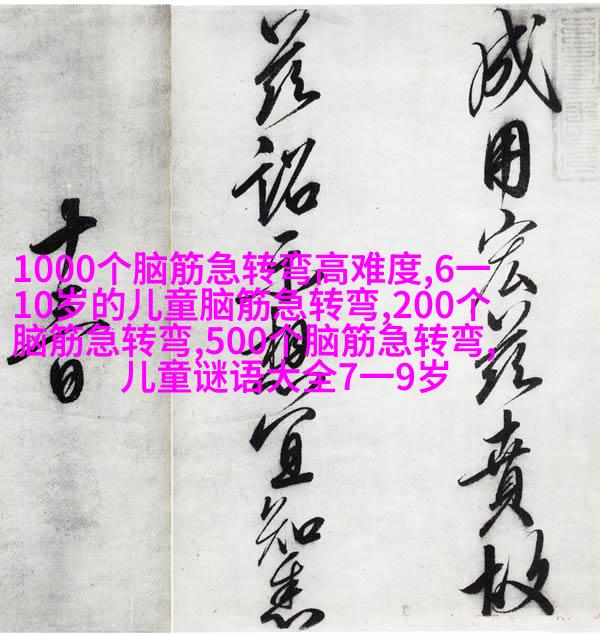 成用宏茲賁故
茲詔示想宜知悉
十日
1000个脑筋急转弯高难度,6一
10岁的儿童脑筋急转弯,200个
脑筋急转弯,500个脑筋急转弯,
儿童谜语大全7一9岁